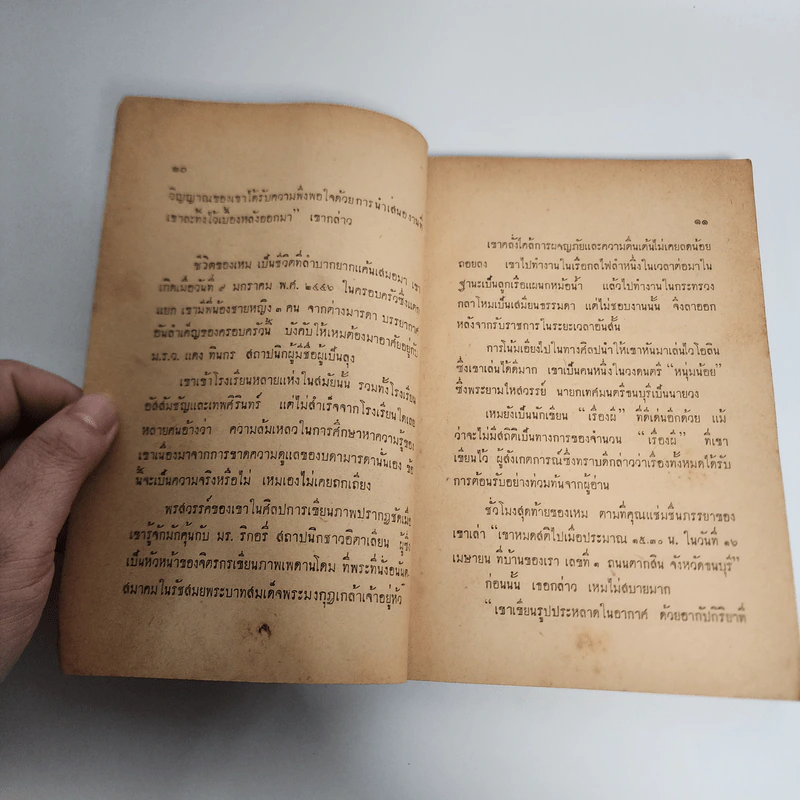 ๑๐
วิญญาณของเขาได้รับความพึงพอใจด้วยการนำเสนองานที่
เขาละทิ้งไว้เบื้องหลังออกมา” เขากล่าว
ชีวิตของเหม เป็นชีวิตที่ลำบากยากแค้นเสมอมา เขา
เกิดเมื่อวันที่ ๙ มกราคม พ.ศ. ๒๔๔๖ ในครอบครัวซึ่งแตก
แยก เขามีพี่น้องชายหญิง ๓ คน จากต่างมารดา บรรยากาศ
อันสำคัญของครอบครัวนี้ บังคับให้เหมต้องมาอาศัยอยู่กับ
ม.ร.ว. แดง ทินกร สถาปนิกผู้มีชื่อผู้เป็นลุง
เขาเข้าโรงเรียนหลายแห่งในสมัยนั้น รวมทั้งโรงเรียน
อัสสัมชัญและเทพศิรินทร์ แต่ไม่สำเร็จจากโรงเรียนใดเลย
หลายคนอ้างว่า ความล้มเหลวในการศึกษาหาความรู้ของ
เขาเนื่องมาจากการขาดความดูแลของบิดามารดานั่นเอง ข้อ
นี้จะเป็นความจริงหรือไม่ เหมเองไม่เคยถกเถียง
พรสวรรค์ของเขาในศิลปการเขียนภาพปรากฏชัดเมื่อ
เขารู้จักมักคุ้นกับ มร. ริกอรี่ สถาปนิกชาวอิตาเลียน ผู้ซึ่ง
เป็นหัวหน้าของจิตรกรเขียนภาพเพดานโดม ที่พระที่นั่งอนันต
สมาคมในรัชสมยพระบาทสมเด็จพระมงกุฎเกล้าเจ้าอยู่หัว
๑๑
เขาคลั่งไคล้การผจญภัยและความตื่นเต้นไม่เคยลดน้อย
ถอยลง เขาไปทำงานในเรือกลไฟลำหนึ่งในเวลาต่อมาใน
ฐานะเป็นลูกเรือแผนกหม้อน้ำ แล้วไปทำงานในกระทรวง
กลาโหมเป็นเสมียนธรรมดา แต่ไม่ชอบงานนั้น จึงลาออก
หลังจากรับราชการในระยะเวลาอันสั้น
การโน้มเอียงไปในทางศิลปนำให้เขาหันมาเล่นไวโอลิน
ซึ่งเขาเล่นได้ดีมาก เขาเป็นคนหนึ่งในวงดนตรี “หนุ่มน้อย”
ซึ่งพระยามไหสวรรย์ นายกเทศมนตรีธนบุรีเป็นนายวง
เหมยังเป็นนักเขียน “เรื่องผี” ที่ดีเด่นอีกด้วย แม้
ว่าจะไม่มีสถิติเป็นทางการของจำนวน “เรื่องผี” ที่เขา
เขียนไว้ ผู้สังเกตการณ์ซึ่งทราบดีกล่าวว่าเรื่องทั้งหมดได้รับ
การต้อนรับอย่างท่วมท้นจากผู้อ่าน
ชั่วโมงสุดท้ายของเหม ตามที่คุณแช่มชื่นภรรยาของ
เขาเล่า “เขาหมดสติไปเมื่อประมาณ ๑๕.๓๐ น. ในวันที่ ๑๖
เมษายน ที่บ้านของเรา เลขที่ ๑ ถนนตากสิน จังหวัดธนบุรี”
ก่อนนั้น เธอกล่าว เหมไม่สบายมาก
“เขาเขียนรูปประหลาดในอากาศ ด้วยอากัปกิริยาที่